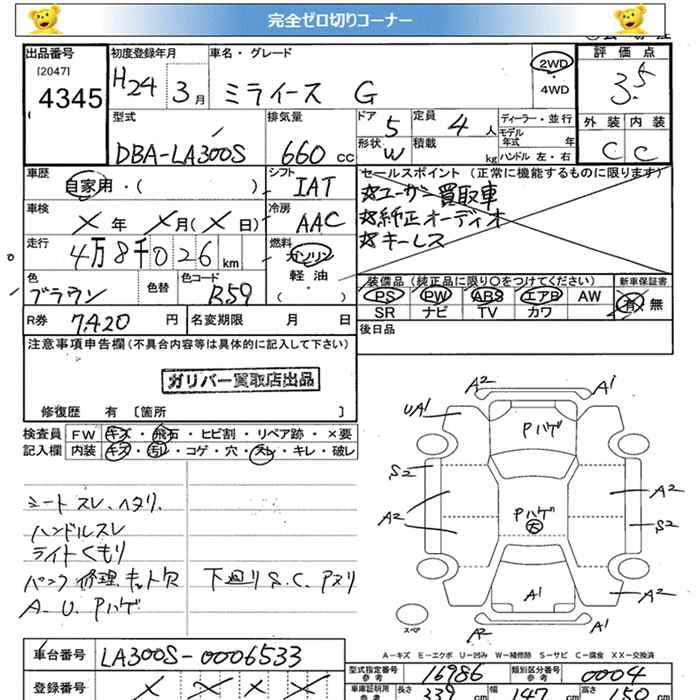 完全ゼロ切りコーナー
出品番号 初度登録年月 車名・グレード 2WD 評価点
[2047] 4345 H24 3月 ミライース G ・ 4WD 3.5
型式 排気量 ドア 5 定員 4人 ディーラー・並行 外装 内装
DBA-LA300S 660cc 形状 W 積載 kg モデル年式 年 ハンドル 左・右 C C
車歴 自家用・( ) シフト IAT セールスポイント (正常に機能するものに限ります)
☆ユーザー買取車
車検 X年 X月(X日) 冷房 AAC ☆純正オーディオ
走行 4万8千026km 燃料 ガソリン ☆キーレス
色 ブラウン 色替 色コード R59 軽油 ( ・ ) 装備品 (純正品に限り○をつけてください) 新車保証書
PS PW ABS エアB AW 有・無
SR ナビ TV カワ
R券 7,420円 名変期限 月 日 後日品
注意事項申告欄(不具合内容等は具体的に記入して下さい)
ガリバー買取店出品
修復歴 有 [箇所 ]
検査員 FW キズ・飛石・ヒビ割・リペア跡・×要
記入欄 内装 キズ・汚レ・コゲ・穴・スレ・キレ・破レ
シートスレ、ヘタリ、
ハンドルスレ
ライトくもり
パンク修理キット欠 下廻りS.C.Pヌリ
A.U.Pハゲ
A2 A1
UA1 Pハゲ
S2
A2 Pハゲ 大 A2
S2
A1 A2
スペア A2 A1
A−キズ E−エクボ U−凹み W−補修跡 S−サビ C−腐食 XX−交換済
車台番号 LA300S-0006533
型式指定番号 参考 16986 類別区分番号 参考 0004
登録番号 X X X X 車庫証明用 参考 長さ 339cm 幅 147cm 高さ 150cm